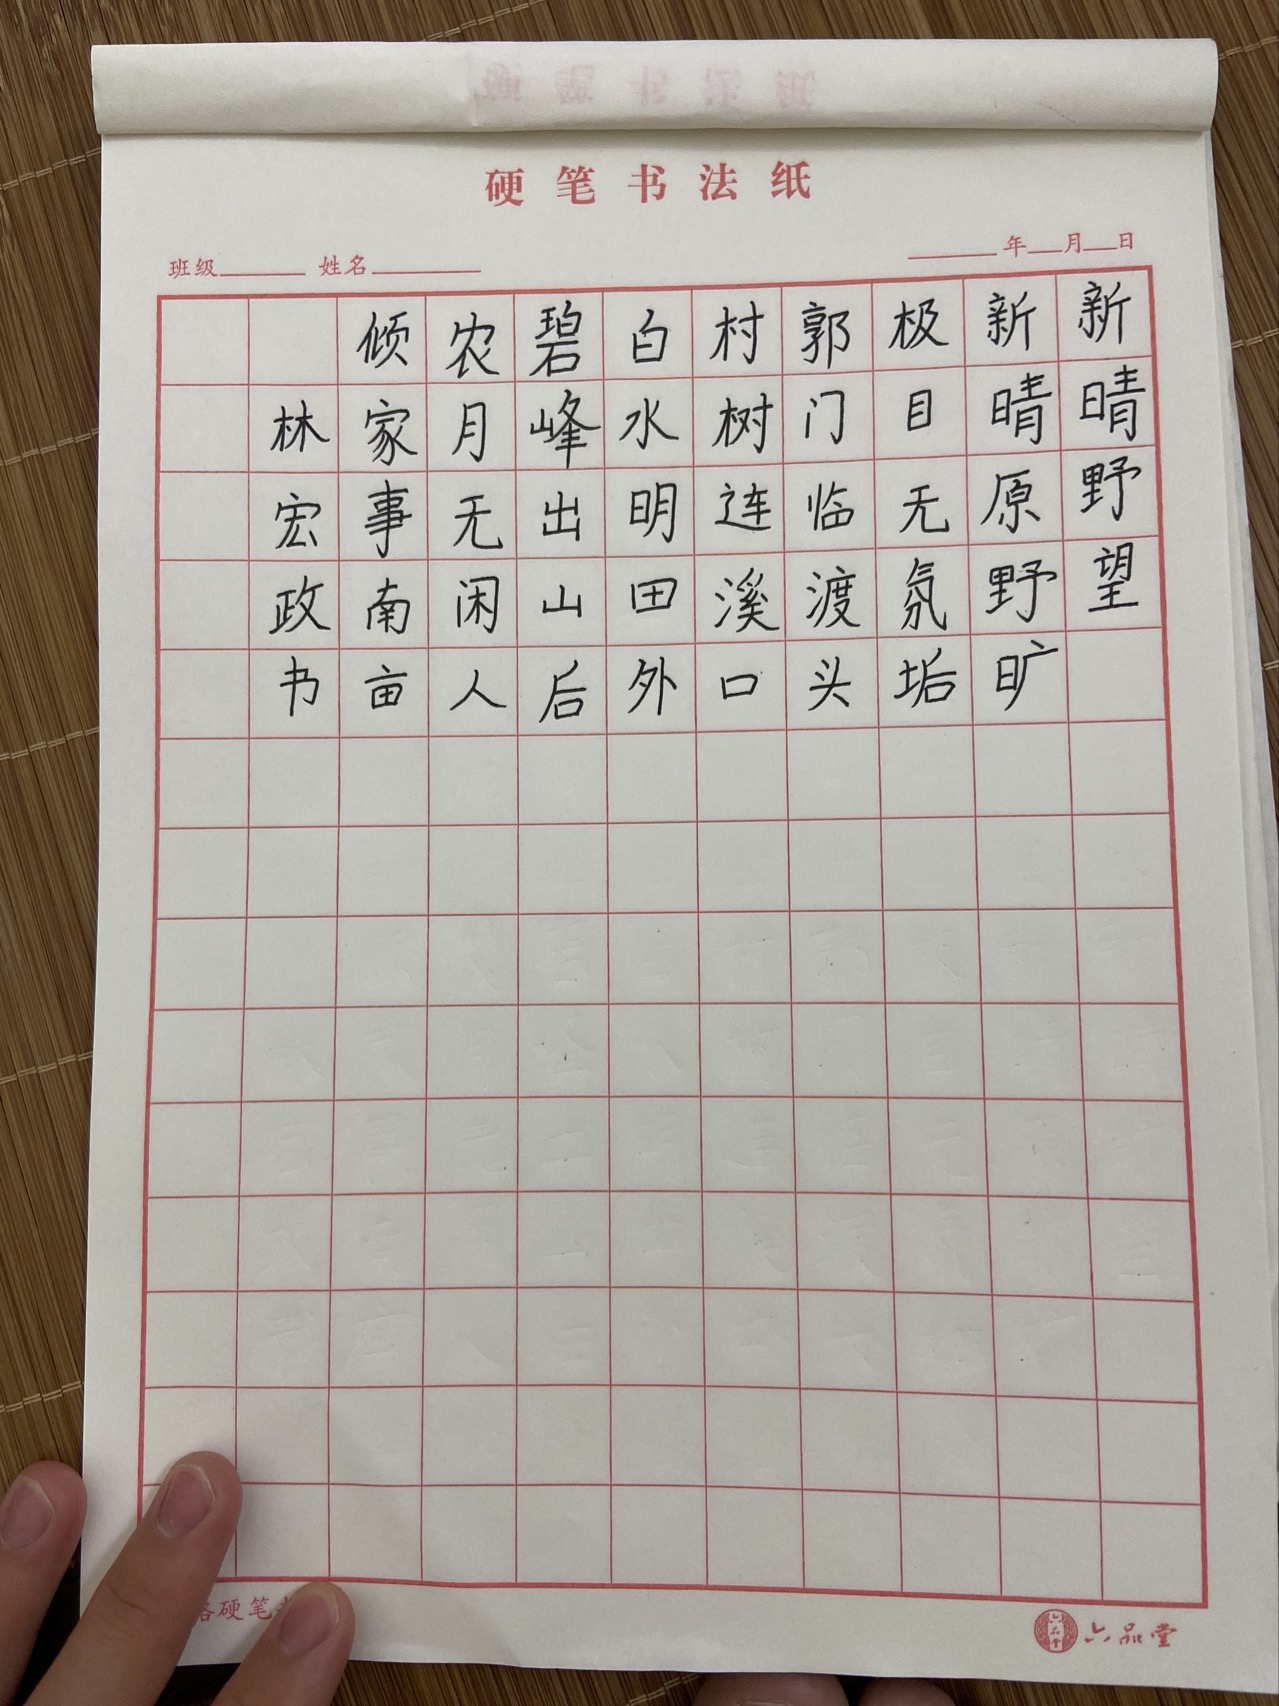 硬笔书法纸
班级 姓名 年 月 日
新晴野望
新原野旷
晴
极目无氛垢
郭门临渡头
村树连溪口
白水明田外
碧峰出山后
农月无闲人
倾家事南亩
林宏政书
格硬笔
六品堂